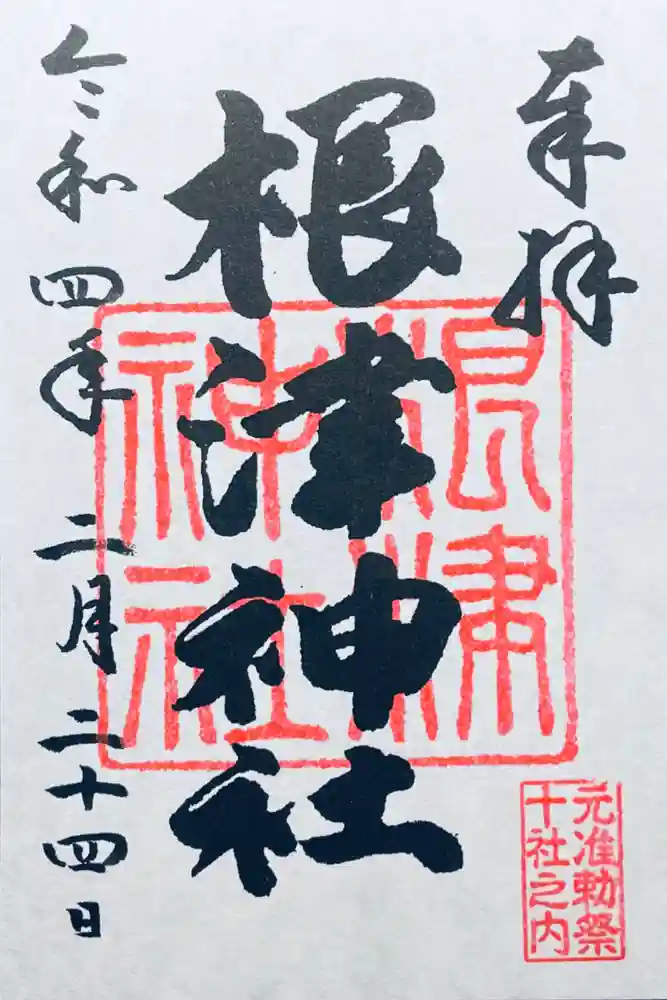 奉拝
根津神社
根津
神社
令和四年二月二十四日
元准勅祭
十社之内